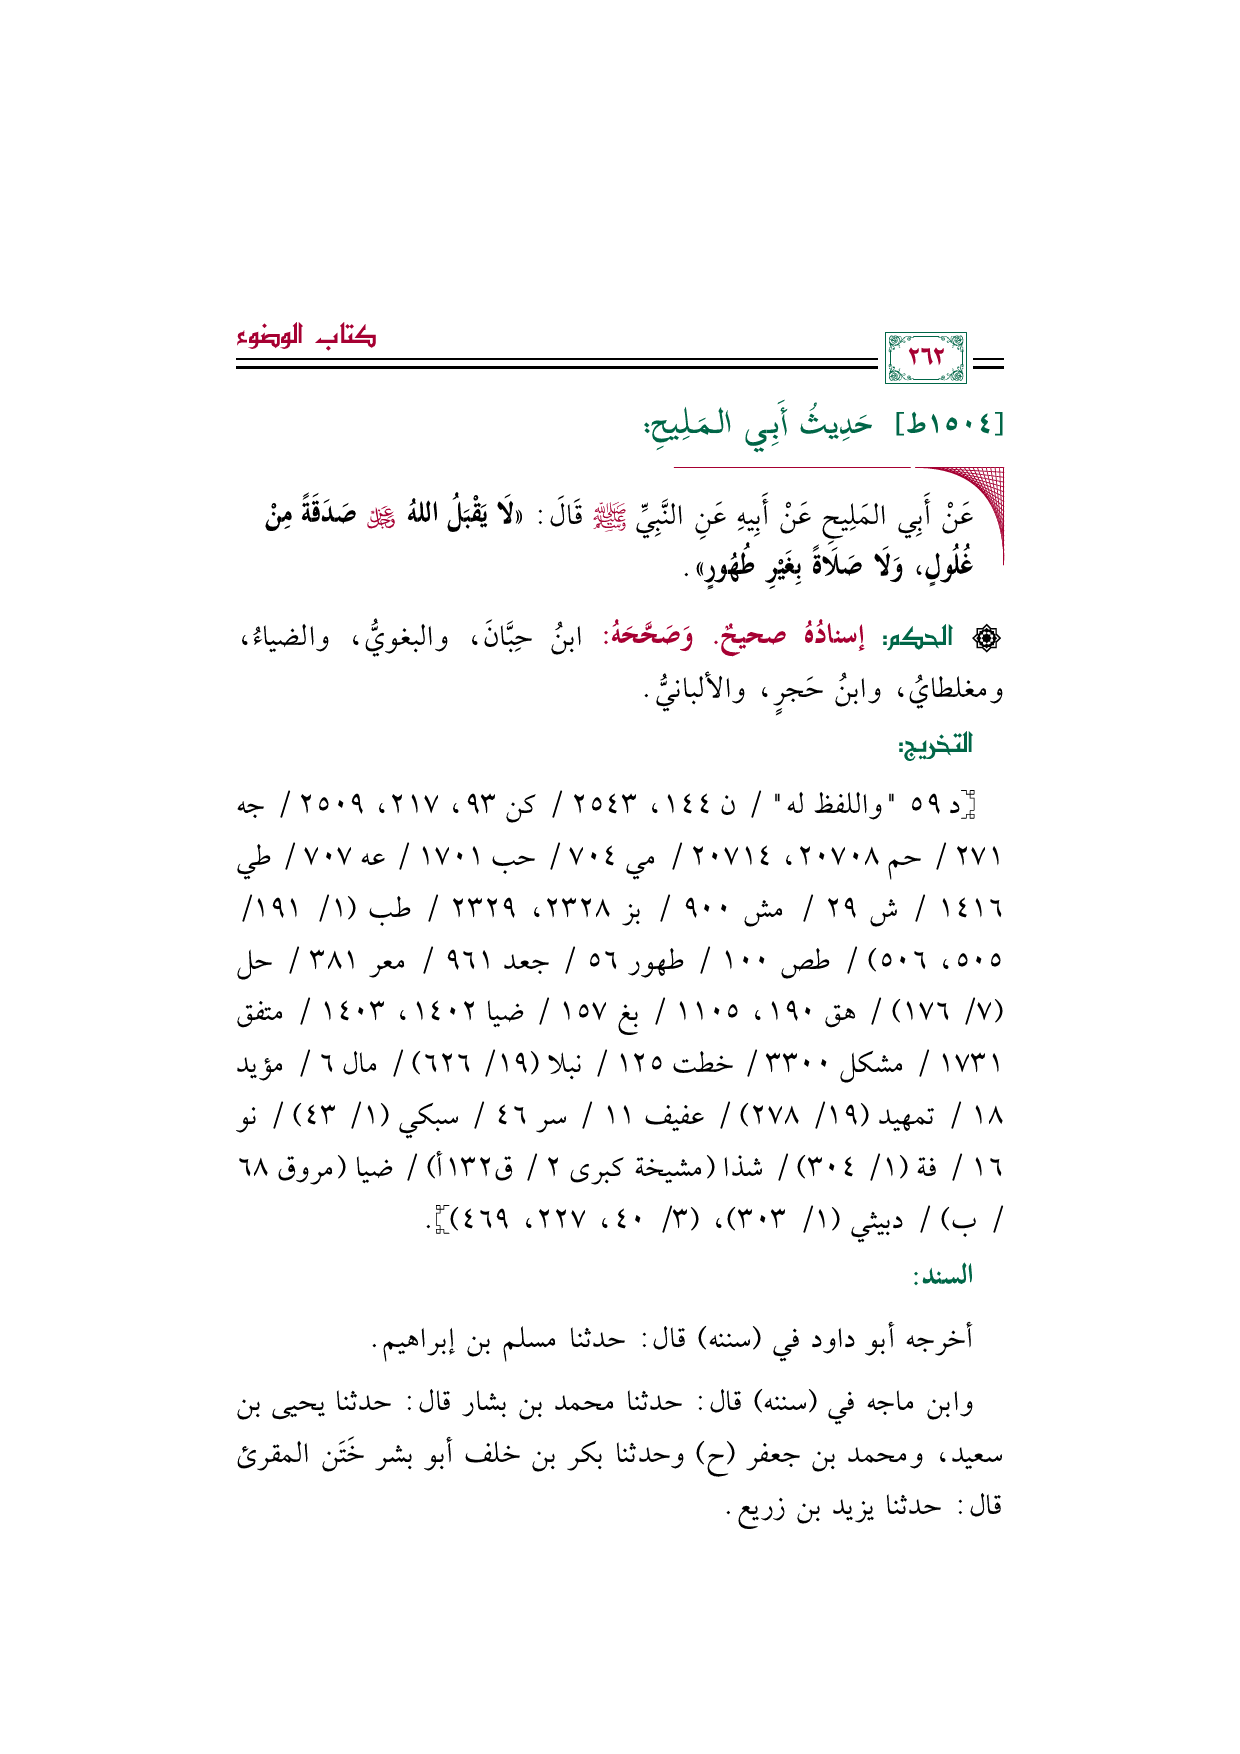 كتاب الوضوء
٢٦٢
[١٥٠٤ط] حَدِيثُ أَبِي المَلِيحِ:
عَنْ أَبِي المَلِيحِ عَنْ أَبِيهِ عَنِ النَّبِيِّ ﷺ قَالَ: «لَا يَقْبَلُ اللهُ عز وجل صَدَقَةً مِنْ
غُلُولٍ، وَلَا صَلَاةً بِغَيْرِ طُهُورٍ».
الحكم: إسنادُهُ صحيحٌ. وَصَحَّحَهُ: ابنُ حِبَّانَ، والبغويُّ، والضياءُ،
ومغلطايُ، وابنُ حَجرٍ، والألبانيُّ.
التخريج:
[د ٥٩ "واللفظ له" / ن ١٤٤، ٢٥٤٣ / كن ٩٣، ٢١٧، ٢٥٠٩ / جه
٢٧١ / حم ٢٠٧٠٨، ٢٠٧١٤ / مي ٧٠٤ / حب ١٧٠١ / عه ٧٠٧ / طي
١٤١٦ / ش ٢٩ / مش ٩٠٠ / بز ٢٣٢٨، ٢٣٢٩ / طب (١/ ١٩١/
٥٠٥، ٥٠٦) / طص ١٠٠ / طهور ٥٦ / جعد ٩٦١ / معر ٣٨١ / حل
(٧/ ١٧٦) / هق ١٩٠، ١١٠٥ / بغ ١٥٧ / ضيا ١٤٠٢، ١٤٠٣ / متفق
١٧٣١ / مشكل ٣٣٠٠ / خطت ١٢٥ / نبلا (١٩/ ٦٢٦) / مال ٦ / مؤيد
١٨ / تمهيد (١٩/ ٢٧٨) / عفيف ١١ / سر ٤٦ / سبكي (١/ ٤٣) / نو
١٦ / فة (١/ ٣٠٤) / شذا (مشيخة كبرى ٢ / ق١٣٢أ) / ضيا (مروق ٦٨
/ ب) / دبيثي (١/ ٣٠٣)، (٣/ ٤٠، ٢٢٧، ٤٦٩)].
السند:
أخرجه أبو داود في (سننه) قال: حدثنا مسلم بن إبراهيم.
وابن ماجه في (سننه) قال: حدثنا محمد بن بشار قال: حدثنا يحيى بن
سعيد، ومحمد بن جعفر (ح) وحدثنا بكر بن خلف أبو بشر خَتَن المقرئ
قال: حدثنا يزيد بن زريع.